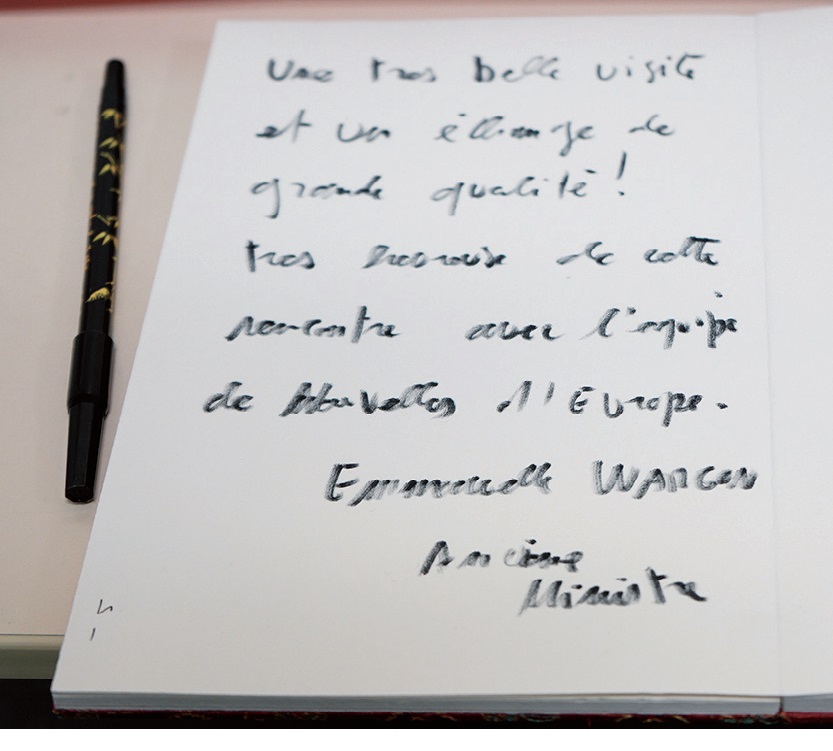 Une tres belle visite
et un échange de
grande qualité !
tres heureuse de cette
rencontre avec l'équipe
de Nouvelles d'Europe.
Emmanuelle WARGON
Ancienne
Ministre